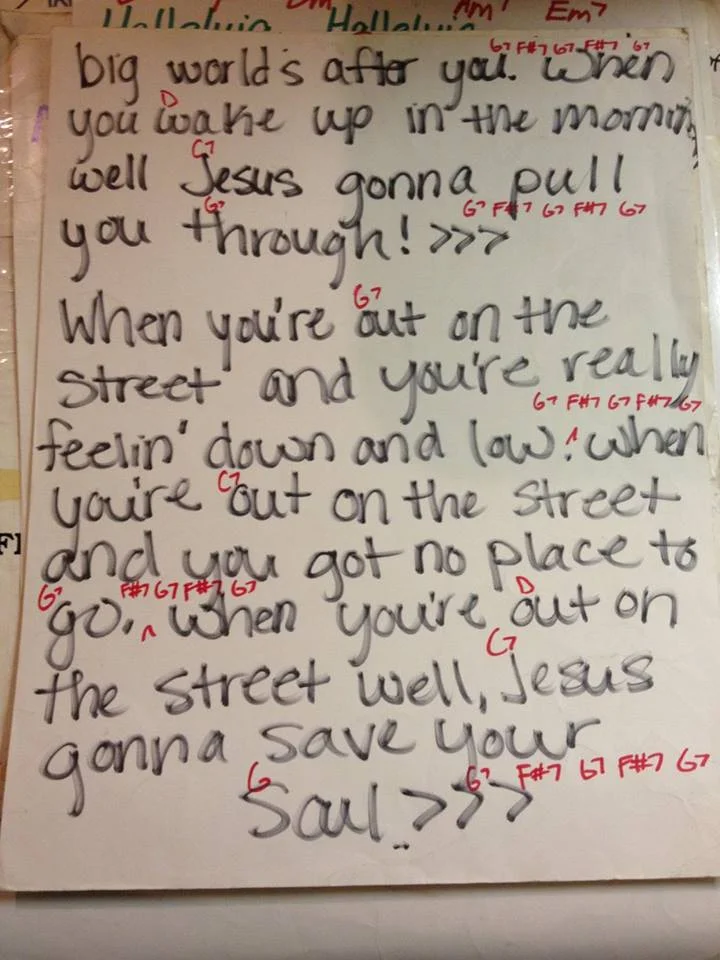 Am7 Em7
Halleluia Halleluia
G7 F#7 G7 F#7 G7
big world's after you. When
D
you wake up in the mornin
C7
well Jesus gonna pull
G7 G7 F#7 G7 F#7 G7
you through! >>>
G7
When you're out on the
street and you're really
G7 F#7 G7 F#7 G7
feelin' down and low. ^ when
C7
you're out on the street
and you got no place to
G7 F#7 G7 F#7 G7 D
go. ^ when you're out on
C7
the street well, Jesus
gonna save your
G G7 F#7 G7 F#7 G7
Soul >>>
F]